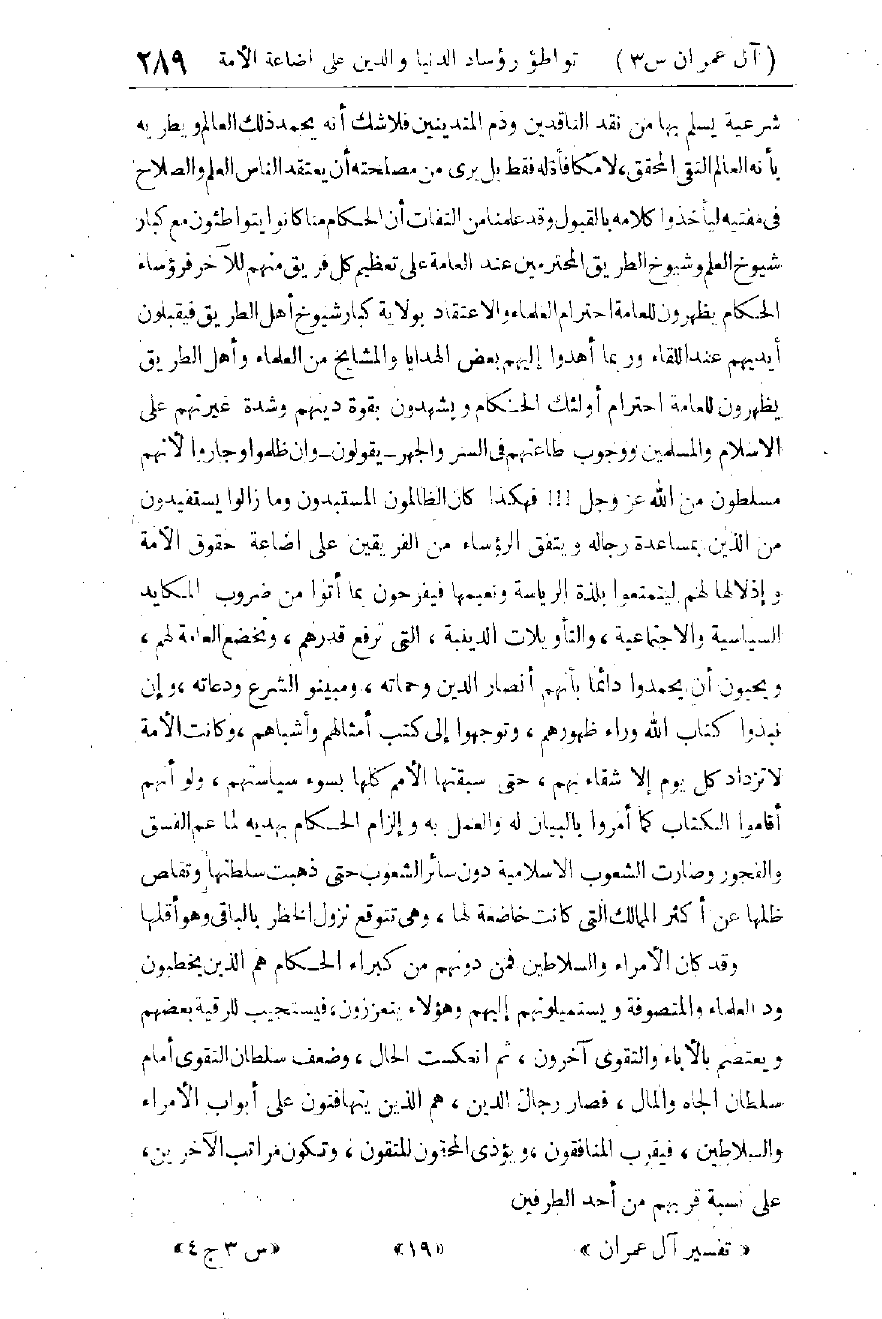 (آل عمران س ٣) تواطؤ رؤساء الدنيا والدين على اضاعة الأمة ٢٨٩
شرعية يسلم بها من نقد الناقدين وذم المتدينين فلا شك أنه يحمد ذلك العالم ويطريه
بأنه العالم التقي المحقق، لا مكافأة له فقط بل يرى من مصلحته أن يعتقد الناس العلم والصلاح
في مفتيه ليأخذوا كلامه بالقبول وقد علمنا من الثقات أن الحكام منا كانوا يتواطئون مع كبار
شيوخ العلم وشيوخ الطريق المحترمين عند العامة على تعظيم كل فريق منهم للآخر فرؤساء
الحكام يظهرون للعامة احترام العلماء والاعتقاد بولاية كبار شيوخ أهل الطريق فيقبلون
أيديهم عند اللقاء وربما أهدوا إليهم بعض الهدايا والمشايخ من العلماء وأهل الطريق
يظهرون للعامة احترام أولئك الحكام ويشهدون بقوة دينهم وشدة غيرتهم على
الاسلام والمسلمين ووجوب طاعتهم في السر والجهر ــ يقولون ــ وان ظلموا وجاروا لأنهم
مسلطون من الله عز وجل !!! فهكذا كان الظالمون المستبدون وما زالوا يستفيدون
من الدين بمساعدة رجاله ويتفق الرؤساء من الفريقين على اضاعة حقوق الأمة
وإذلالها لهم ليتمتعوا بلذة الرياسة ونعيمها فيفرحون بما أتوا من ضروب المكايد
السياسية والاجتماعية ، والتأويلات الدينية ، التي ترفع قدرهم ، وتخضع العامة لهم ،
ويحبون أن يحمدوا دائما بأنهم أنصار الدين وحماته ، ومبينو الشرع ودعاته ، وإن
نبذوا كتاب الله وراء ظهورهم ، وتوجهوا إلى كتب أمثالهم وأشباههم ، وكانت الأمة
لا تزداد كل يوم إلا شقاء بهم ، حتى سبقتها الأمم كلها بسوء سياستهم ، ولو أنهم
أقاموا الكتاب كما أمروا بالبيان له والعمل به وإلزام الحكام بهديه لما عم الفسق
والفجور وصارت الشعوب الاسلامية دون سائر الشعوب حتى ذهبت سلطتها وتقلص
ظلها عن أكثر الممالك التي كانت خاضعة لها ، وهي تتوقع نزول الخطر بالباقي وهو أقلها
وقد كان الأمراء والسلاطين فمن دونهم من كبراء الحكام هم الذين يخطبون
ود العلماء والمتصوفة ويستميلونهم إليهم وهؤلاء يتعززون، فيستجيب للرقية بعضهم
ويعتصم بالاباء والتقوى آخرون ، ثم انعكست الحال ، وضعف سلطان التقوى أمام
سلطان الجاه والمال ، فصار رجال الدين ، هم الذين يتهافتون على أبواب الأمراء
والسلاطين ، فيقرب المنافقون ، ويؤذى المحقون المتقون ، وتكون مراتب الآخرين،
على نسبة قربهم من أحد الطرفين
« تفسير آل عمران » «١٩» «س ٣ ج ٤»